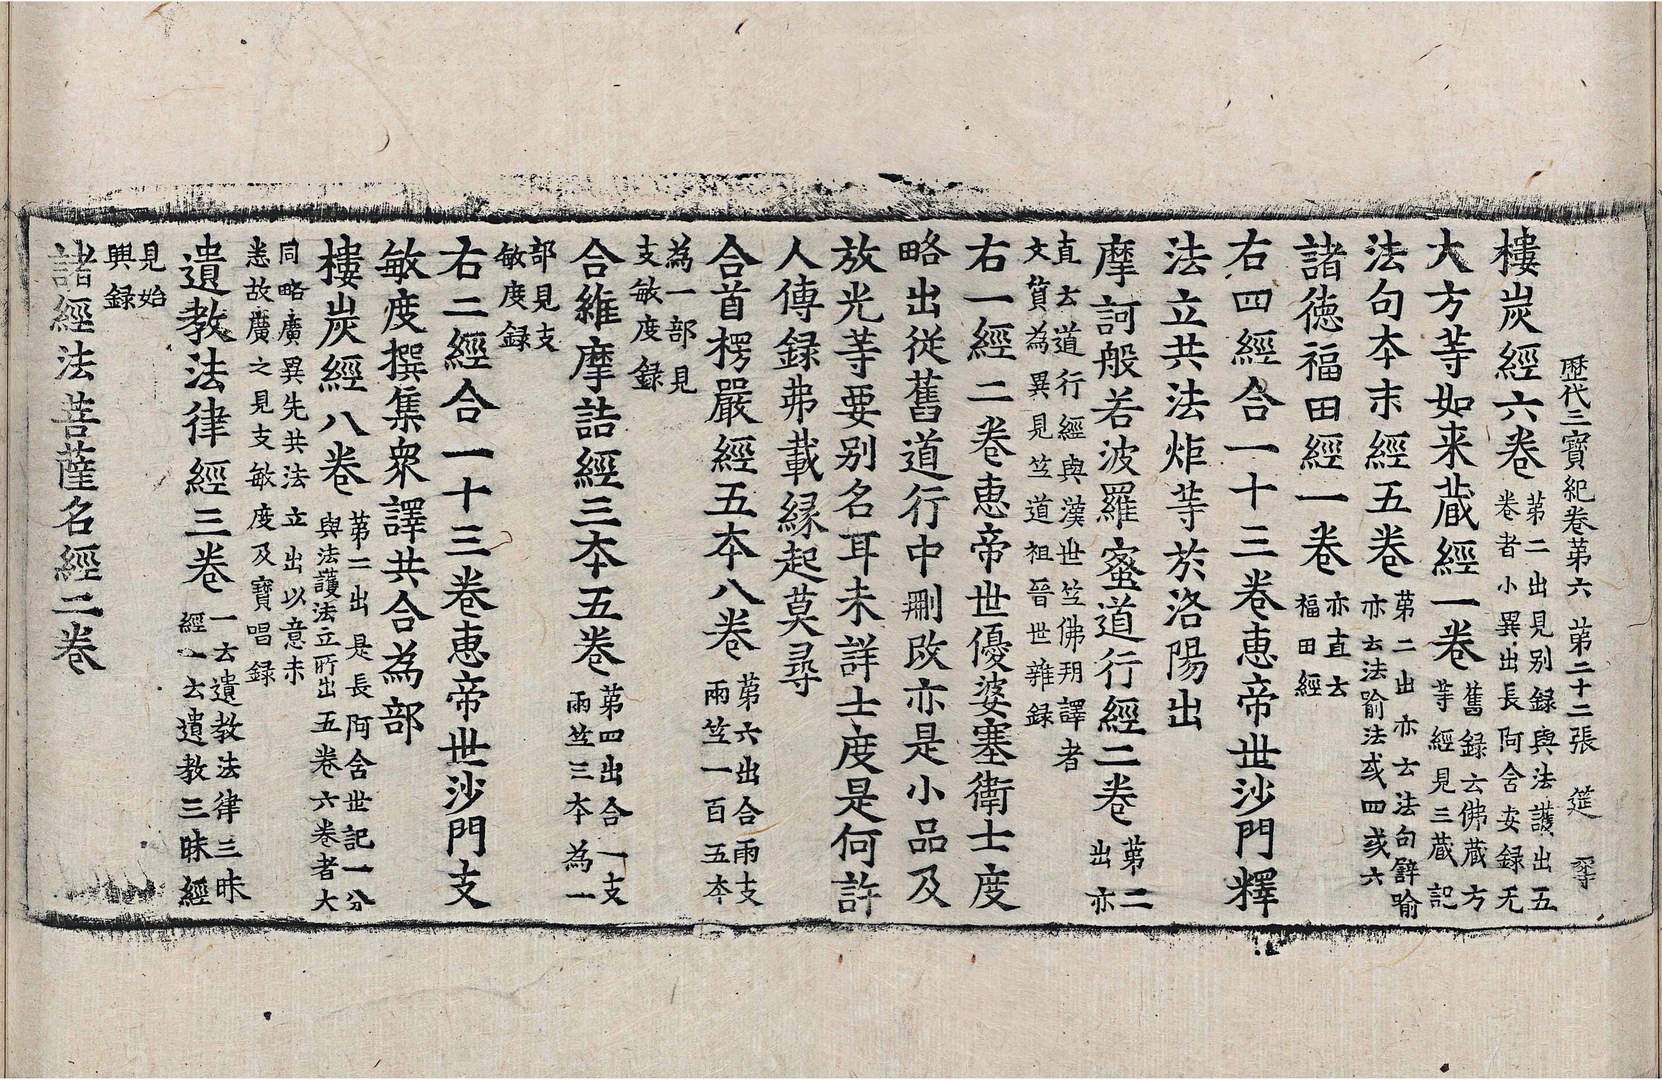 歷代三寶紀卷第六 第二十二張 筵
樓炭經六卷第二出見別録與法護出五卷者小異出長阿含安録无
大方等如来蔵經一卷舊録云佛蔵方等經見三蔵記
法句本末經五卷第二出亦云法句譬喻亦云法喻法或四或六
諸徳福田經一卷亦直云福田經
右四經合一十三卷恵帝世沙門釋
法立共法炬等於洛陽出
摩訶般若波羅蜜道行經二卷第二出亦
直云道行經與漢世竺佛朔譯者文質為異見竺道祖晉世雜録
右一經二卷恵帝世優婆塞衛士度
略出従舊道行中刪改亦是小品及
放光等要別名耳未詳士度是何許
人傳録弗載縁起莫尋
合首楞嚴經五本八卷第六出合兩支兩竺一百五本
為一部見支敏度録
合維摩詰經三本五卷第四出合一支兩竺三本為一
部見支敏度録
右二經合一十三卷恵帝世沙門支
敏度撰集衆譯共合為部
樓炭經八卷第二出是長阿含世記一分與法護法立所出五卷六卷者大
同略廣異先共法立出以意未悉故廣之見支敏度及寶唱録
遺教法律經三卷一云遺教法律三昧經一云遺教三昧經
見始興録
諸經法菩薩名經二卷